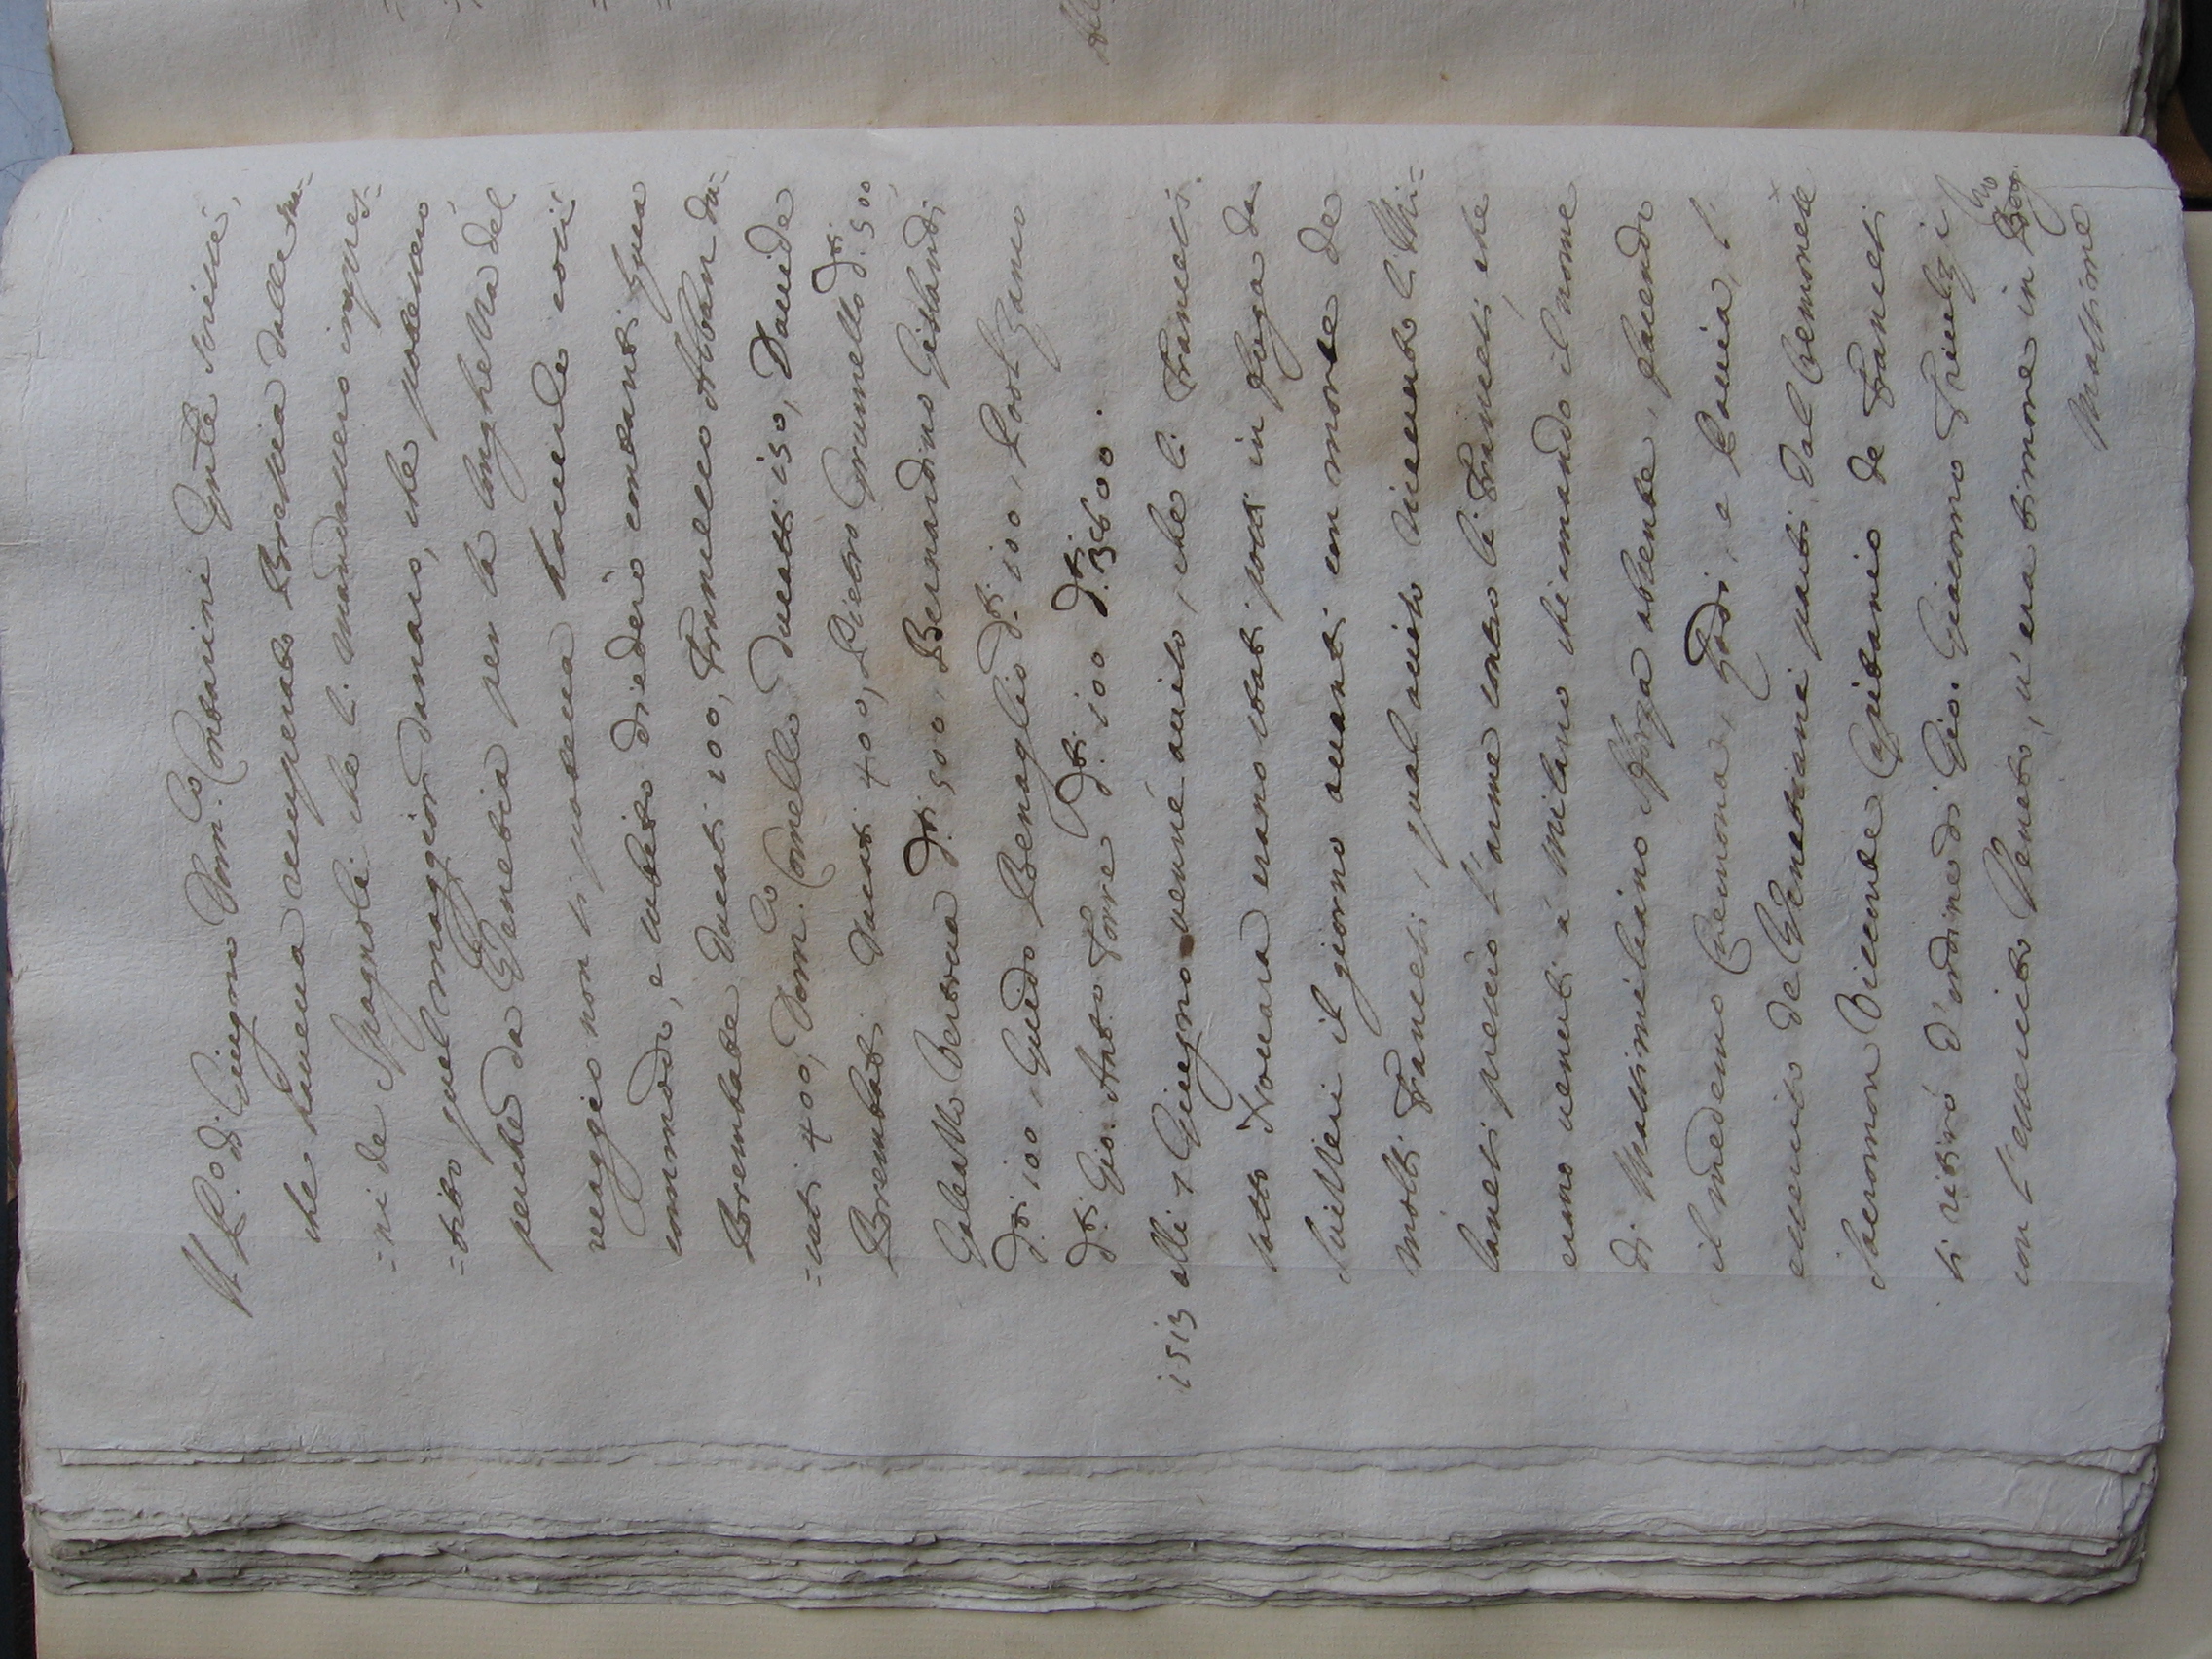 Il P.º di Giugno Dom.co Contarini Gnãle scrisse,
che haueua recuperato Brescia dalle ma=
=ni de Spagnoli che li mandassero impres=
=tito quel maggior danaro, che poteuero
perche da Venetia per la longhezza del
uiaggio non si poteua hauerlo così
commodo, e subito diedero contanti Luca
Brembate Ducati 100, Francesco Alban du=
=cati 400, Dom.co Cornello Ducatti 150, Dauide
Brembati Ducati 400, Pietro Grumello d.ti 500,
Galeazzo 500, Bernardino Gislandi
d.ti 100, Guido Benaglio d.ti 100, Post Zanco
d.ti Gio. Ant.o Torre d.ti 100 d.ti 3600.
1513 alli 7 Giugno uenne auiso, che li Francesi
sotto Nouara erano stati posti in fuga da
Suizzeri il giorno auanti con morte de
molti Francesi, qual auiso riceuuto li Mi=
lanesi preseo l'arme contro li Francesi, che
erano uenuti à Milano chiamando il nome
di Massimiliano Sforza absente, facendo
il medemo Cremona, Lodi, e Pauia, l'
essercito de Venetiani partì dal Cremonese
Sacromon Visconte Capitanio de Francesi
si ritirò d'ordine di Gio. Giacomo Triulzi
con l'essercito Veneto, u'era timore in Berg.mo
Massime